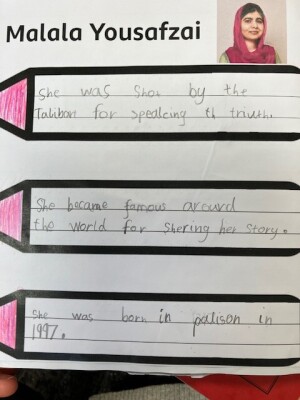 Malala Yousafzai
She was shot by the
Taliban for speaking th truuth.
She became famous around
the world for shering her story.
She was born in pakison in
1997.